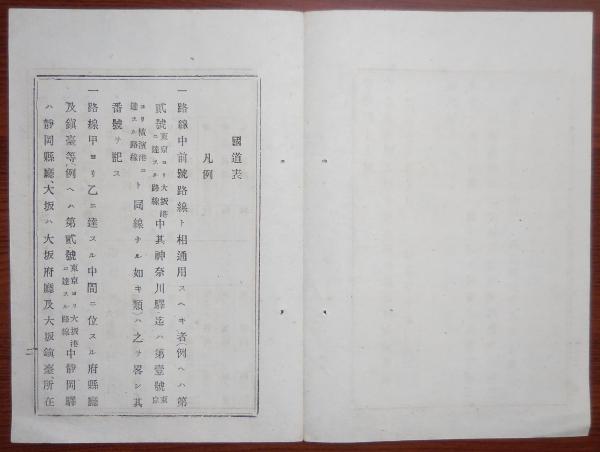 國道表
凡例
一路線中前號路線ト相通用スヘキ者(例ヘハ第
貳號東京ヨリ大坂港ニ達スル路線中其神奈川驛迄ハ第壹號東京
ヨリ横濱港ニ達スル路線ト同線ナル如キ類)ハ之ヲ畧シ其
番號ヲ記ス
一路線甲ヨリ乙ニ達スル中間ニ位スル府縣廳
及鎭臺等(例ヘハ第貳號東京ヨリ大坂港ニ達スル路線中静岡驛
ハ静岡縣廳、大坂ハ大坂府廳及大坂鎭臺、所在